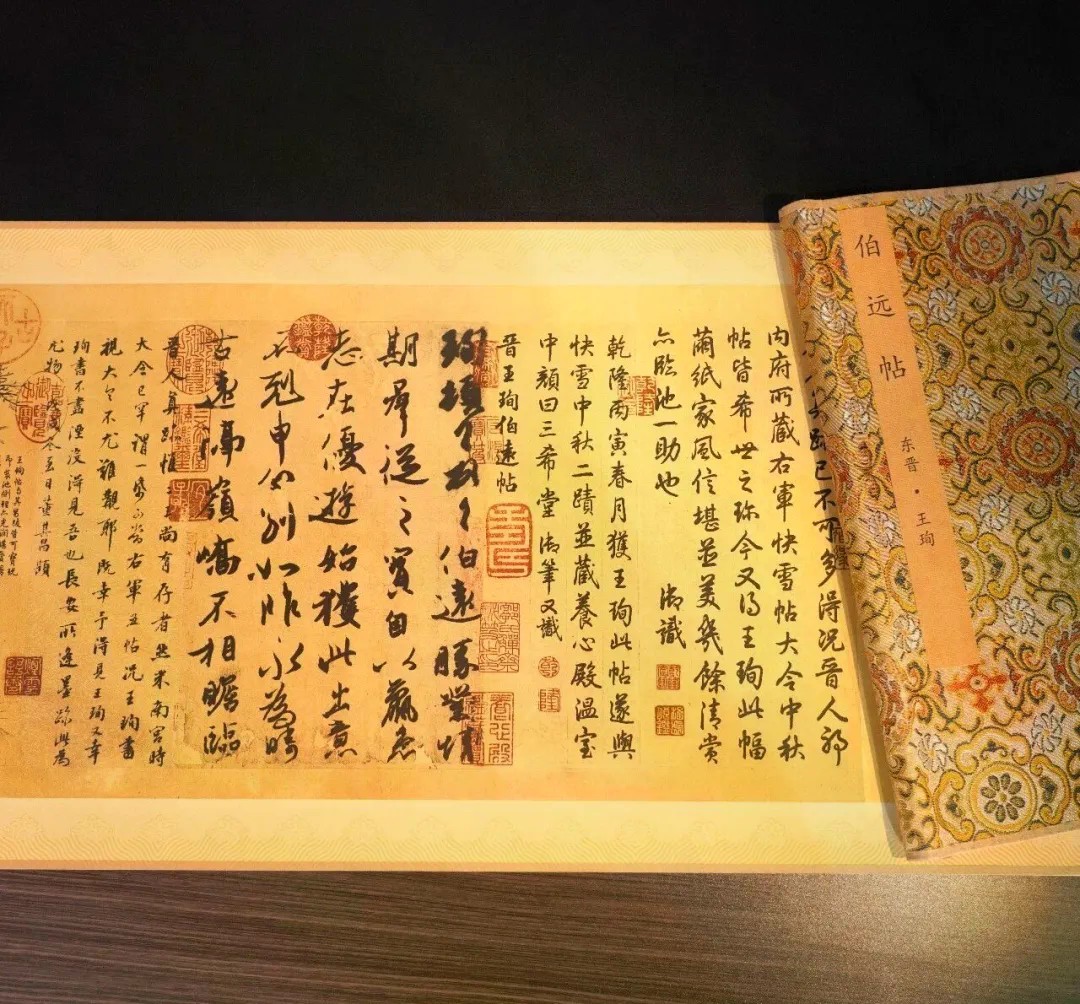 伯远帖
东晋·王珣
已不可多得况晋人邪
内府所藏右軍快雪帖大令中秋
帖皆希世之珍今又得王珣此幅
繭紙家風信堪並美幾餘清賞
亦臨池一助也 御識
乾隆丙寅春月獲王珣此帖遂與
快雪中秋二蹟並藏養心殿温室
中顏曰三希堂 御筆又識
乾隆
晋王珣伯遠帖
珣頓首頓首伯遠勝業情
期群從之寶自以羸患
志在優遊始獲此出意
不剋申分别如昨永為疇
古遠隔嶺嶠不相瞻臨
晋人真跡惟二王尚有存者然米南宫時
大令已罕謂一紙可當右軍五帖况王珣書
視大令不尤難覯耶既幸予得見王珣又幸
珣書不盡湮没得見吾也長安所逢墨跡此為
尤物戊戌冬至日董其昌題